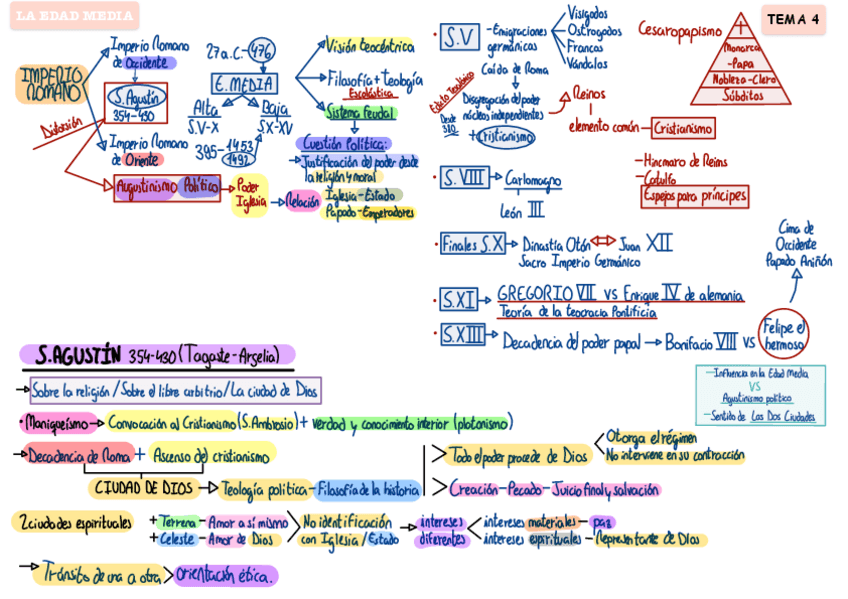 LA EDAD MEDIA
TEMA 4
IMPERIO ROMANO
Imperio Romano
de Occidente
S. Agustín
354-430
Distorsión
Imperio Romano
de Oriente
Augustinismo Político
Poder
Iglesia
Relación
Iglesia-Estado
Papado-Emperadores
27 a.C.-476
E. MEDIA
Alta
S.V-X
Baja
S.X-XV
395-1453
1492
Visión teocéntrica
Filosofía + teología
Escolástica
Sistema Feudal
Cuestión Política:
-Justificación del poder desde
la religión y moral
S.V
-Emigraciones
germánicas
Visigodos
Ostrogodos
Francos
Vándalos
Caída de Roma
Desde
380
Disgregación del poder
núcleos independientes
+ Cristianismo
Reinos
elemento común - Cristianismo
Cesaropapismo
Monarca
-Papa
Nobleza-Clero
Súbditos
S.VIII
Carlomagno
León III
-Hincmaro de Reims
-Catulfo
Espejos para príncipes
Finales S.X
Dinastía Otón
Juan XII
Sacro Imperio Germánico
S.XI
GREGORIO VII vs Enrique IV de alemania
Teoría de la teocracia Pontificia
S.XIII
Decadencia del poder papal → Bonifacio VIII vs
Felipe el
hermoso
Cima de
Occidente
Papado Aviñón
-Influencia en la Edad Media
VS
Agustinismo político
-Sentido de Las Dos Ciudades
S.AGUSTÍN 354-430 (Tagaste-Argelia)
Sobre la religión/Sobre el libre arbitrio/La ciudad de Dios
Maniqueísmo → Convocación al Cristianismo (S.Ambrosio) + verdad y conocimiento interior (platonismo)
Decadencia de Roma + Ascenso del cristianismo
CIUDAD DE DIOS → Teología politica - Filosofía de la historia
> Todo el poder procede de Dios
Otorga el régimen
No interviene en su contracción
> Creación-Pecado-Juicio final y salvación
2 ciudades espirituales
+ Terrena - Amor a sí mismo
+ Celeste - Amor de Dios
No identificación
con Iglesia/Estado
intereses
diferentes
intereses materiales - paz
intereses espirituales - Representante de Dios
Tránsito de una a otra > orientación ética.